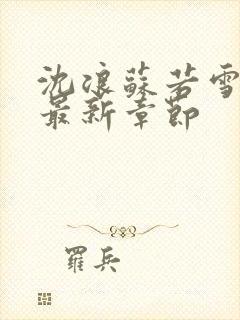 沈浪蘇若雪
最新章節
羅兵